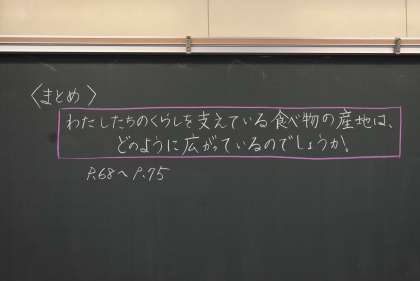 〈まとめ〉
わたしたちのくらしを支えている食べ物の産地は、
どのように広がっているのでしょうか。
P.68〜P.75